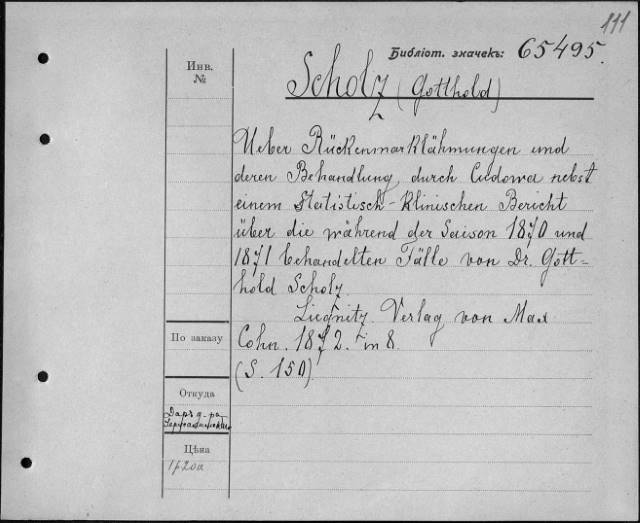 111
Библіот. значекъ: 65495.
Инв.
№
Scholz (Gotthold)
Ueber Rückenmarklähmungen und
deren Behandlung durch Cudowa nebst
einem Statistisch-klinischen Bericht
über die während der Saison 1870 und
1871 behandelten Fälle von Dr. Gott=
hold Scholz.
Liegnitz. Verlag von Max
Cohn. 1872. in 8.
(S. 150)
По заказу
Откуда
Даръ д-ра
Цѣна